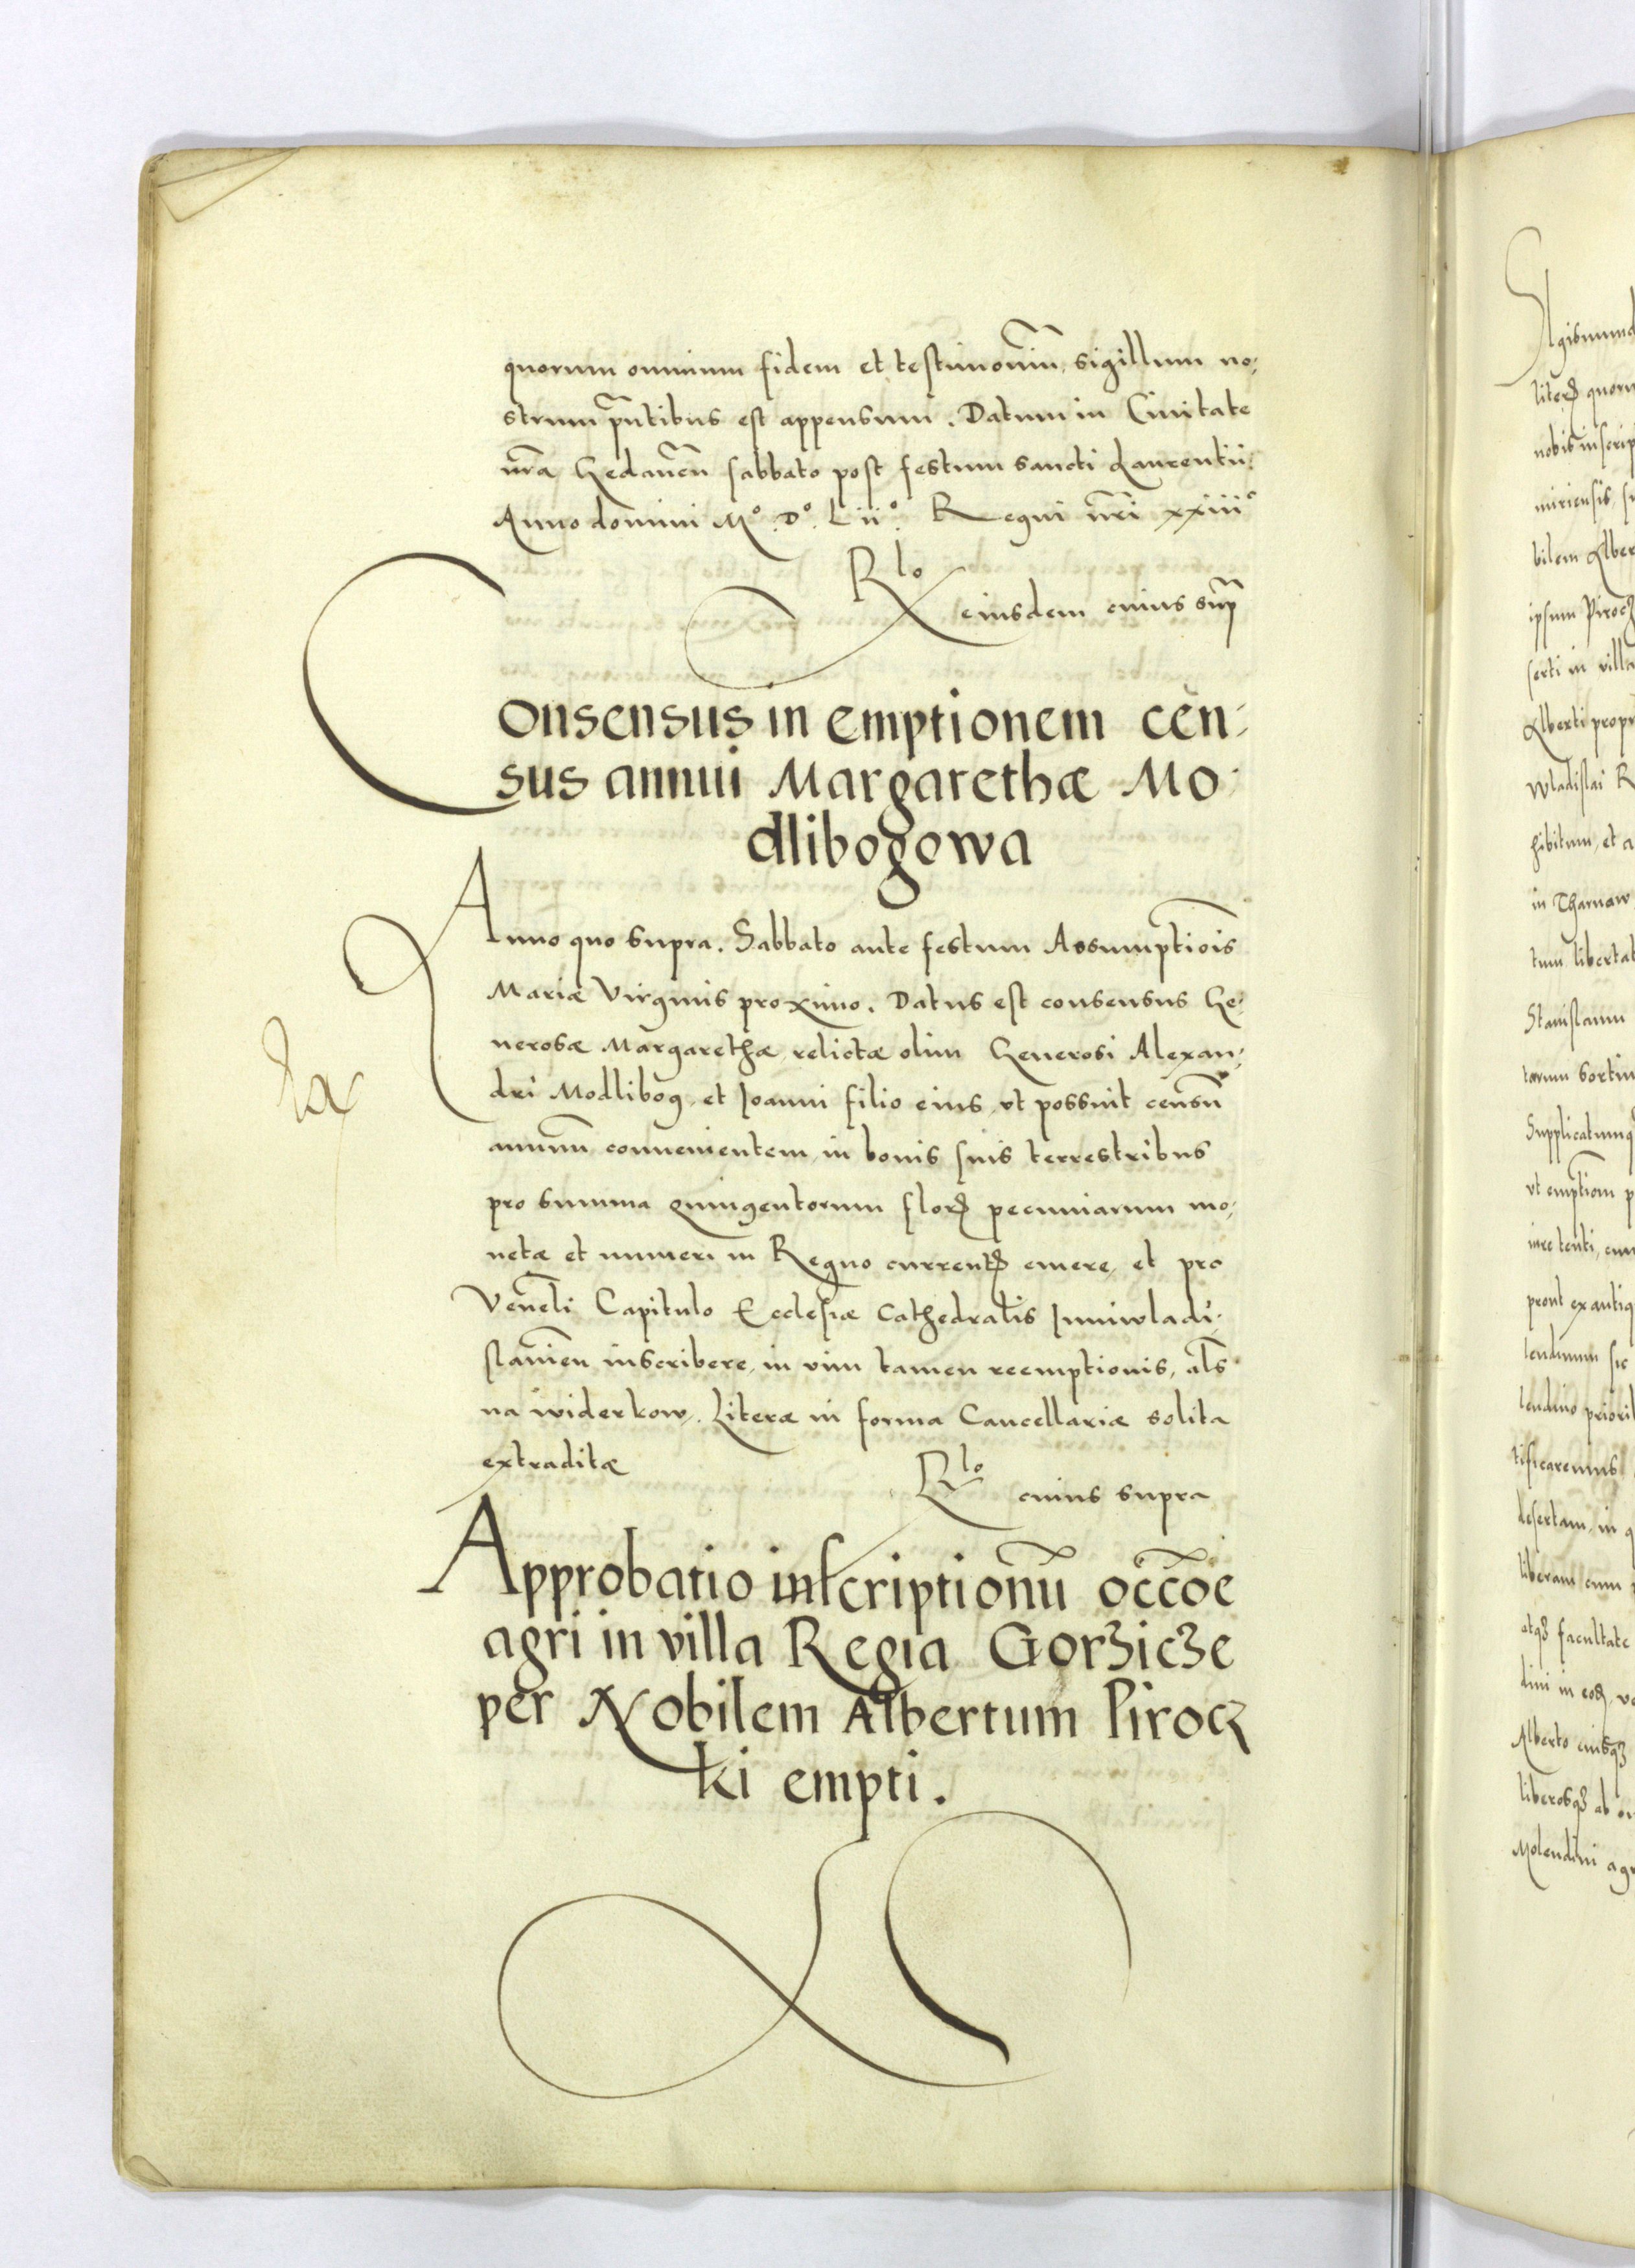 quorum omnium fidem et testimoniũ, sigillum no,
strum p̃ntibus est appensum. Datum in Ciuitate
nr̃a Gedaneñ sabbato post festum sancti Laurentii.
Anno domini M°. D°. Lii°. Regni nr̃i xxiii°
Rlo eiusdem cuius sup̃
Consensus in emptionem cen-
sus annui Margarethæ Mo-
dlibogowa
Anno quo supra. Sabbato ante festum Assumptiõis
Mariæ Virginis proximo. Datus est consensus Ge-
nerosæ Margarethæ relictæ olim Generosi Alexan-
dri Modlibog, et Ioanni filio eius, vt possint censũ
annuũ conuenientem, in bonis suis terrestribus
pro summa quingentorum floꝝ pecuniarum mo,
netæ et numeri in Regno currentꝭ emere, et pro
Venełi Capitulo Ecclesiæ Cathedralis Iuniwladi-
slauieñ inscribere, in vim tamen reemptionis, ałs
na widerkow. Literæ in forma Cancellariæ solita
extraditæ
Rlo cuius supra
Approbatio inscriptionũ occõe
agri in villa Regia Gorziecze
per Nobilem Albertum Pirocz
ki empti.
Sigismund
literꝭ quoru
nobis inscrip
miriensis, su
bilem Alber
ipsum Pirocz
serti in villa
Alberti propr
Wladislai R
hibitum, et a
in Tharnaw
tum libertat
Stanislaum
torum sortiu
Supplicatumqꝫ
vt emptiom p
iure tenti, cum
prout ex antiq
lendinum sic
lendino priorib
tificaremus
desertam, in q
liberam cum
atqꝫ facultate
dini in eoꝝ, ve
Alberto eiusqꝫ
liberosqꝫ ab o
Molendini agr